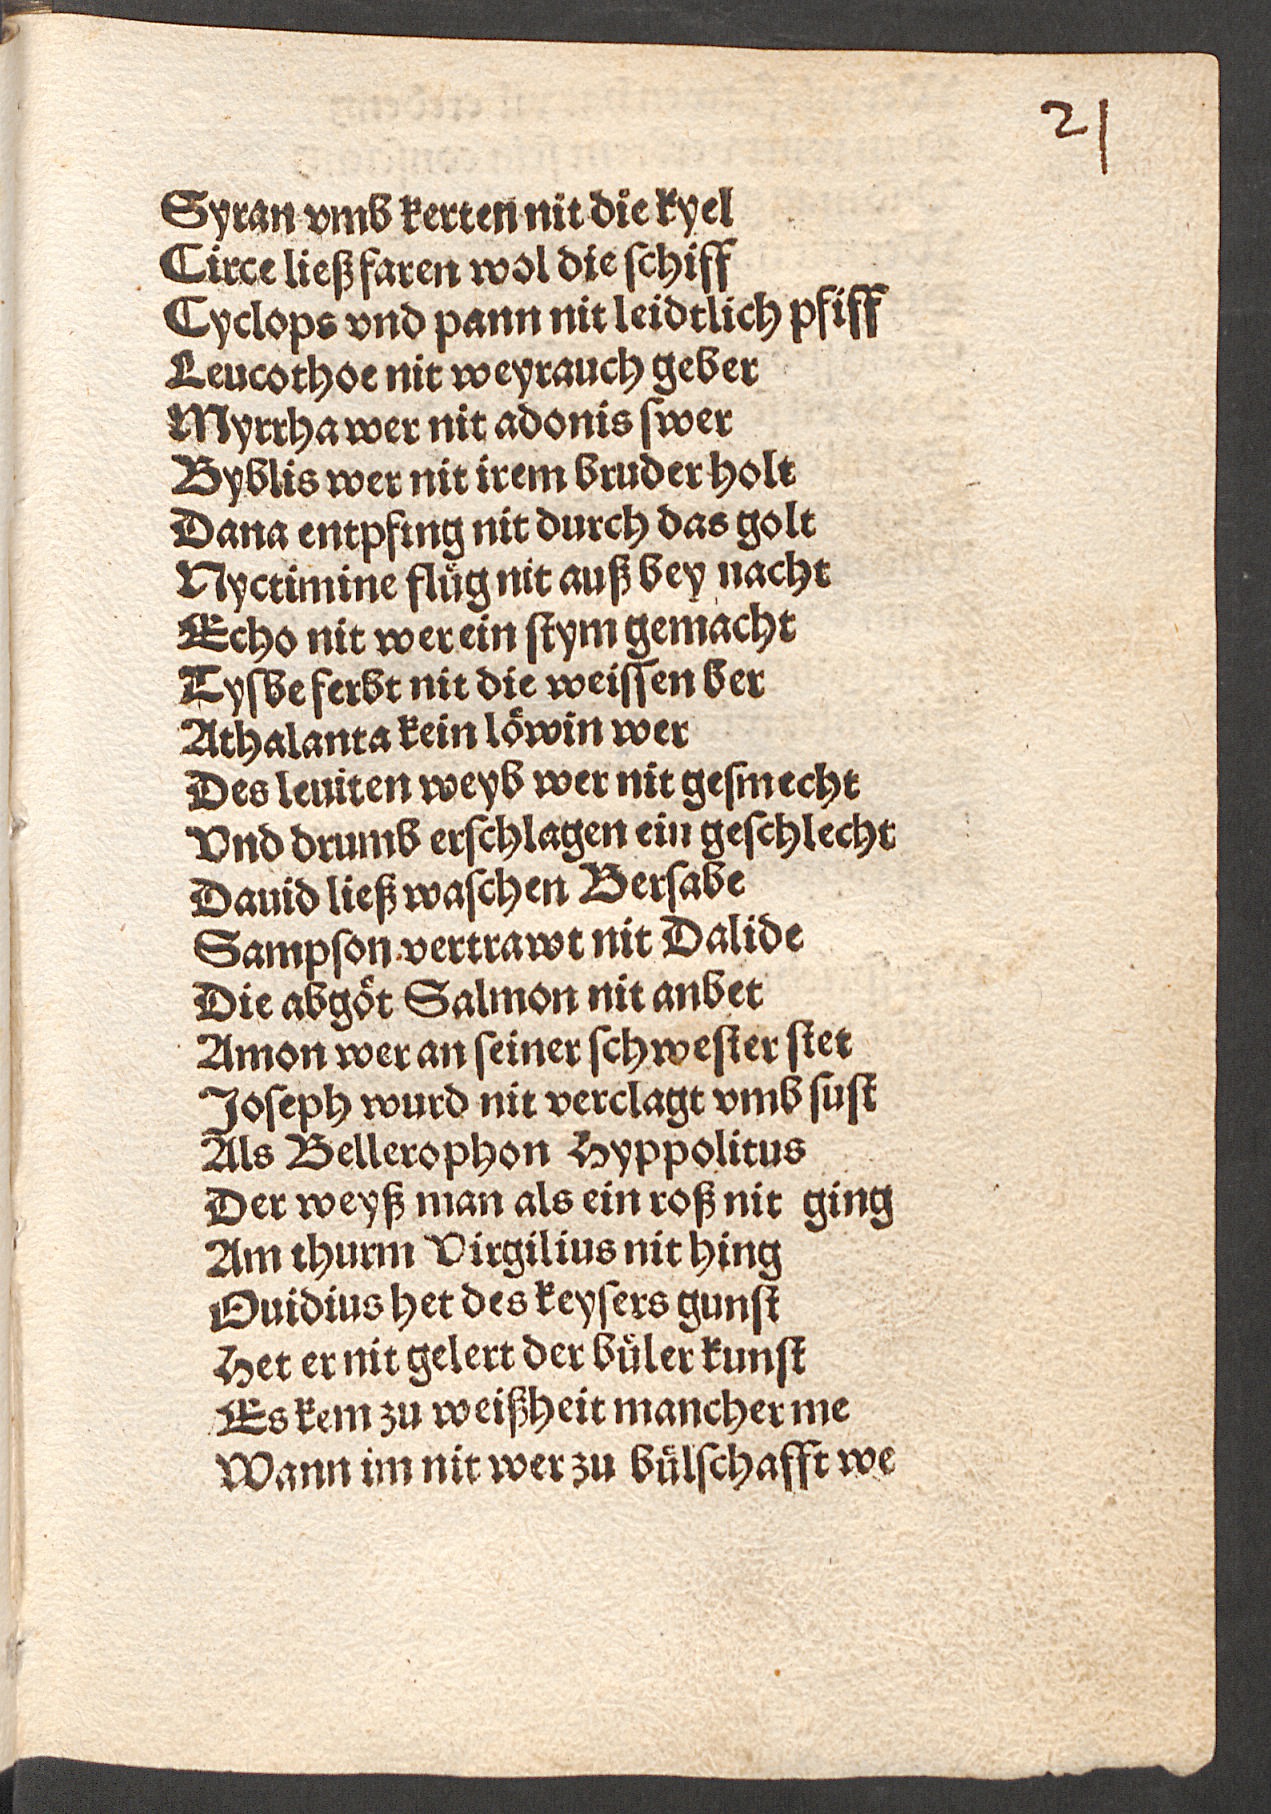 21
Syran vmb kerten nit die kyel
Circe ließ faren wol die schiff
Cyclops vnd pann nit leidtlich pfiff
Leucothoe nit weyrauch geber
Myrrha wer nit adonis swer
Byblis wer nit irem bruder holt
Dana entpfing nit durch das golt
Nyctimine flůg nit auß bey nacht
Echo nit wer ein stym gemacht
Tysbe ferbt nit die weissen ber
Athalanta kein löwin wer
Des leuiten weyb wer nit gesmecht
Vnd drumb erschlagen ein geschlecht
Dauid ließ waschen Bersabe
Sampson vertrawt nit Dalide
Die abgöt Salmon nit anbet
Amon wer an seiner schwester stet
Joseph wurd nit verclagt vmb sust
Als Bellerophon Hyppolitus
Der weyß man als ein roß nit ging
Am thurm Virgilius nit hing
Ouidius het des keysers gunst
Het er nit gelert der bůler kunst
Es kem zu weißheit mancher me
Wann im nit wer zu bůlschafft we